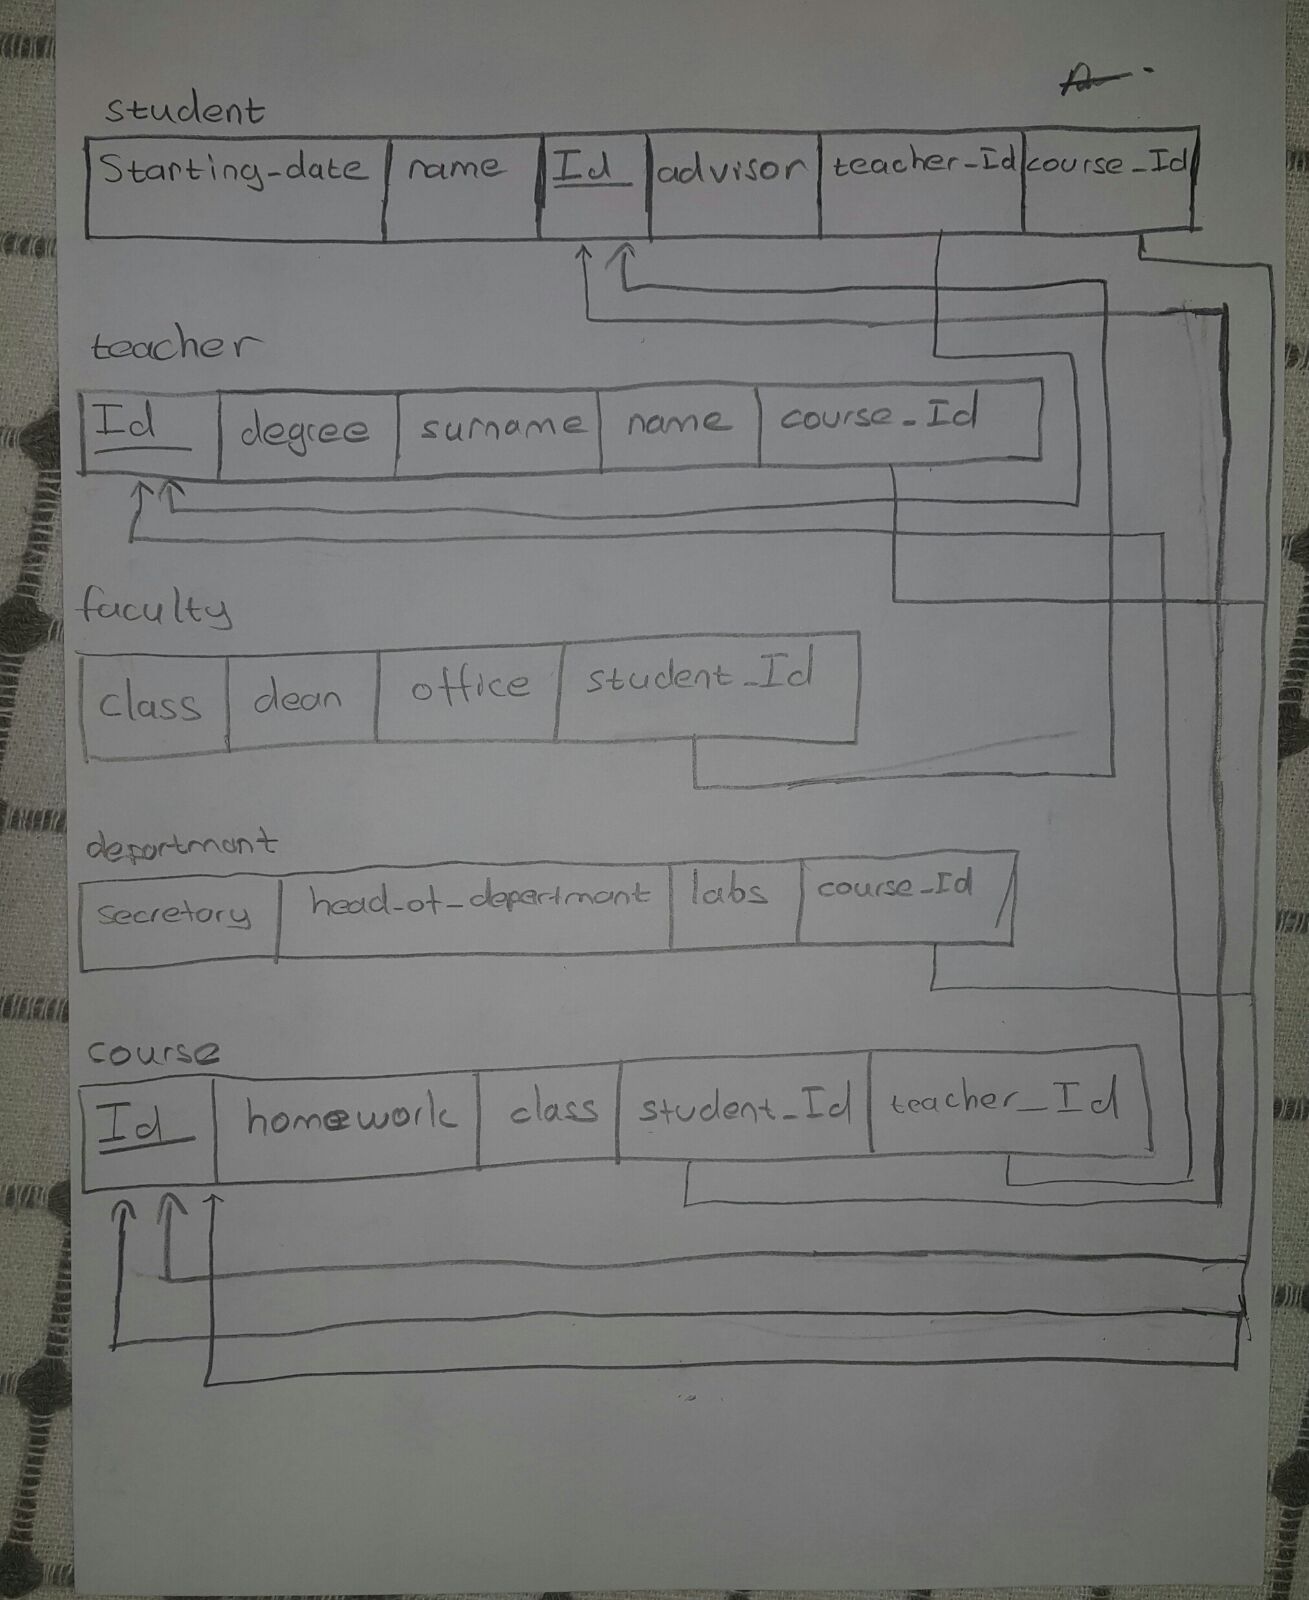 student
Starting-date name Id advisor teacher-Id course_Id
teacher
Id degree surname name course_Id
faculty
class dean office student_Id
department
secretary head-of-department labs course_Id
course
Id homework class student_Id teacher_Id